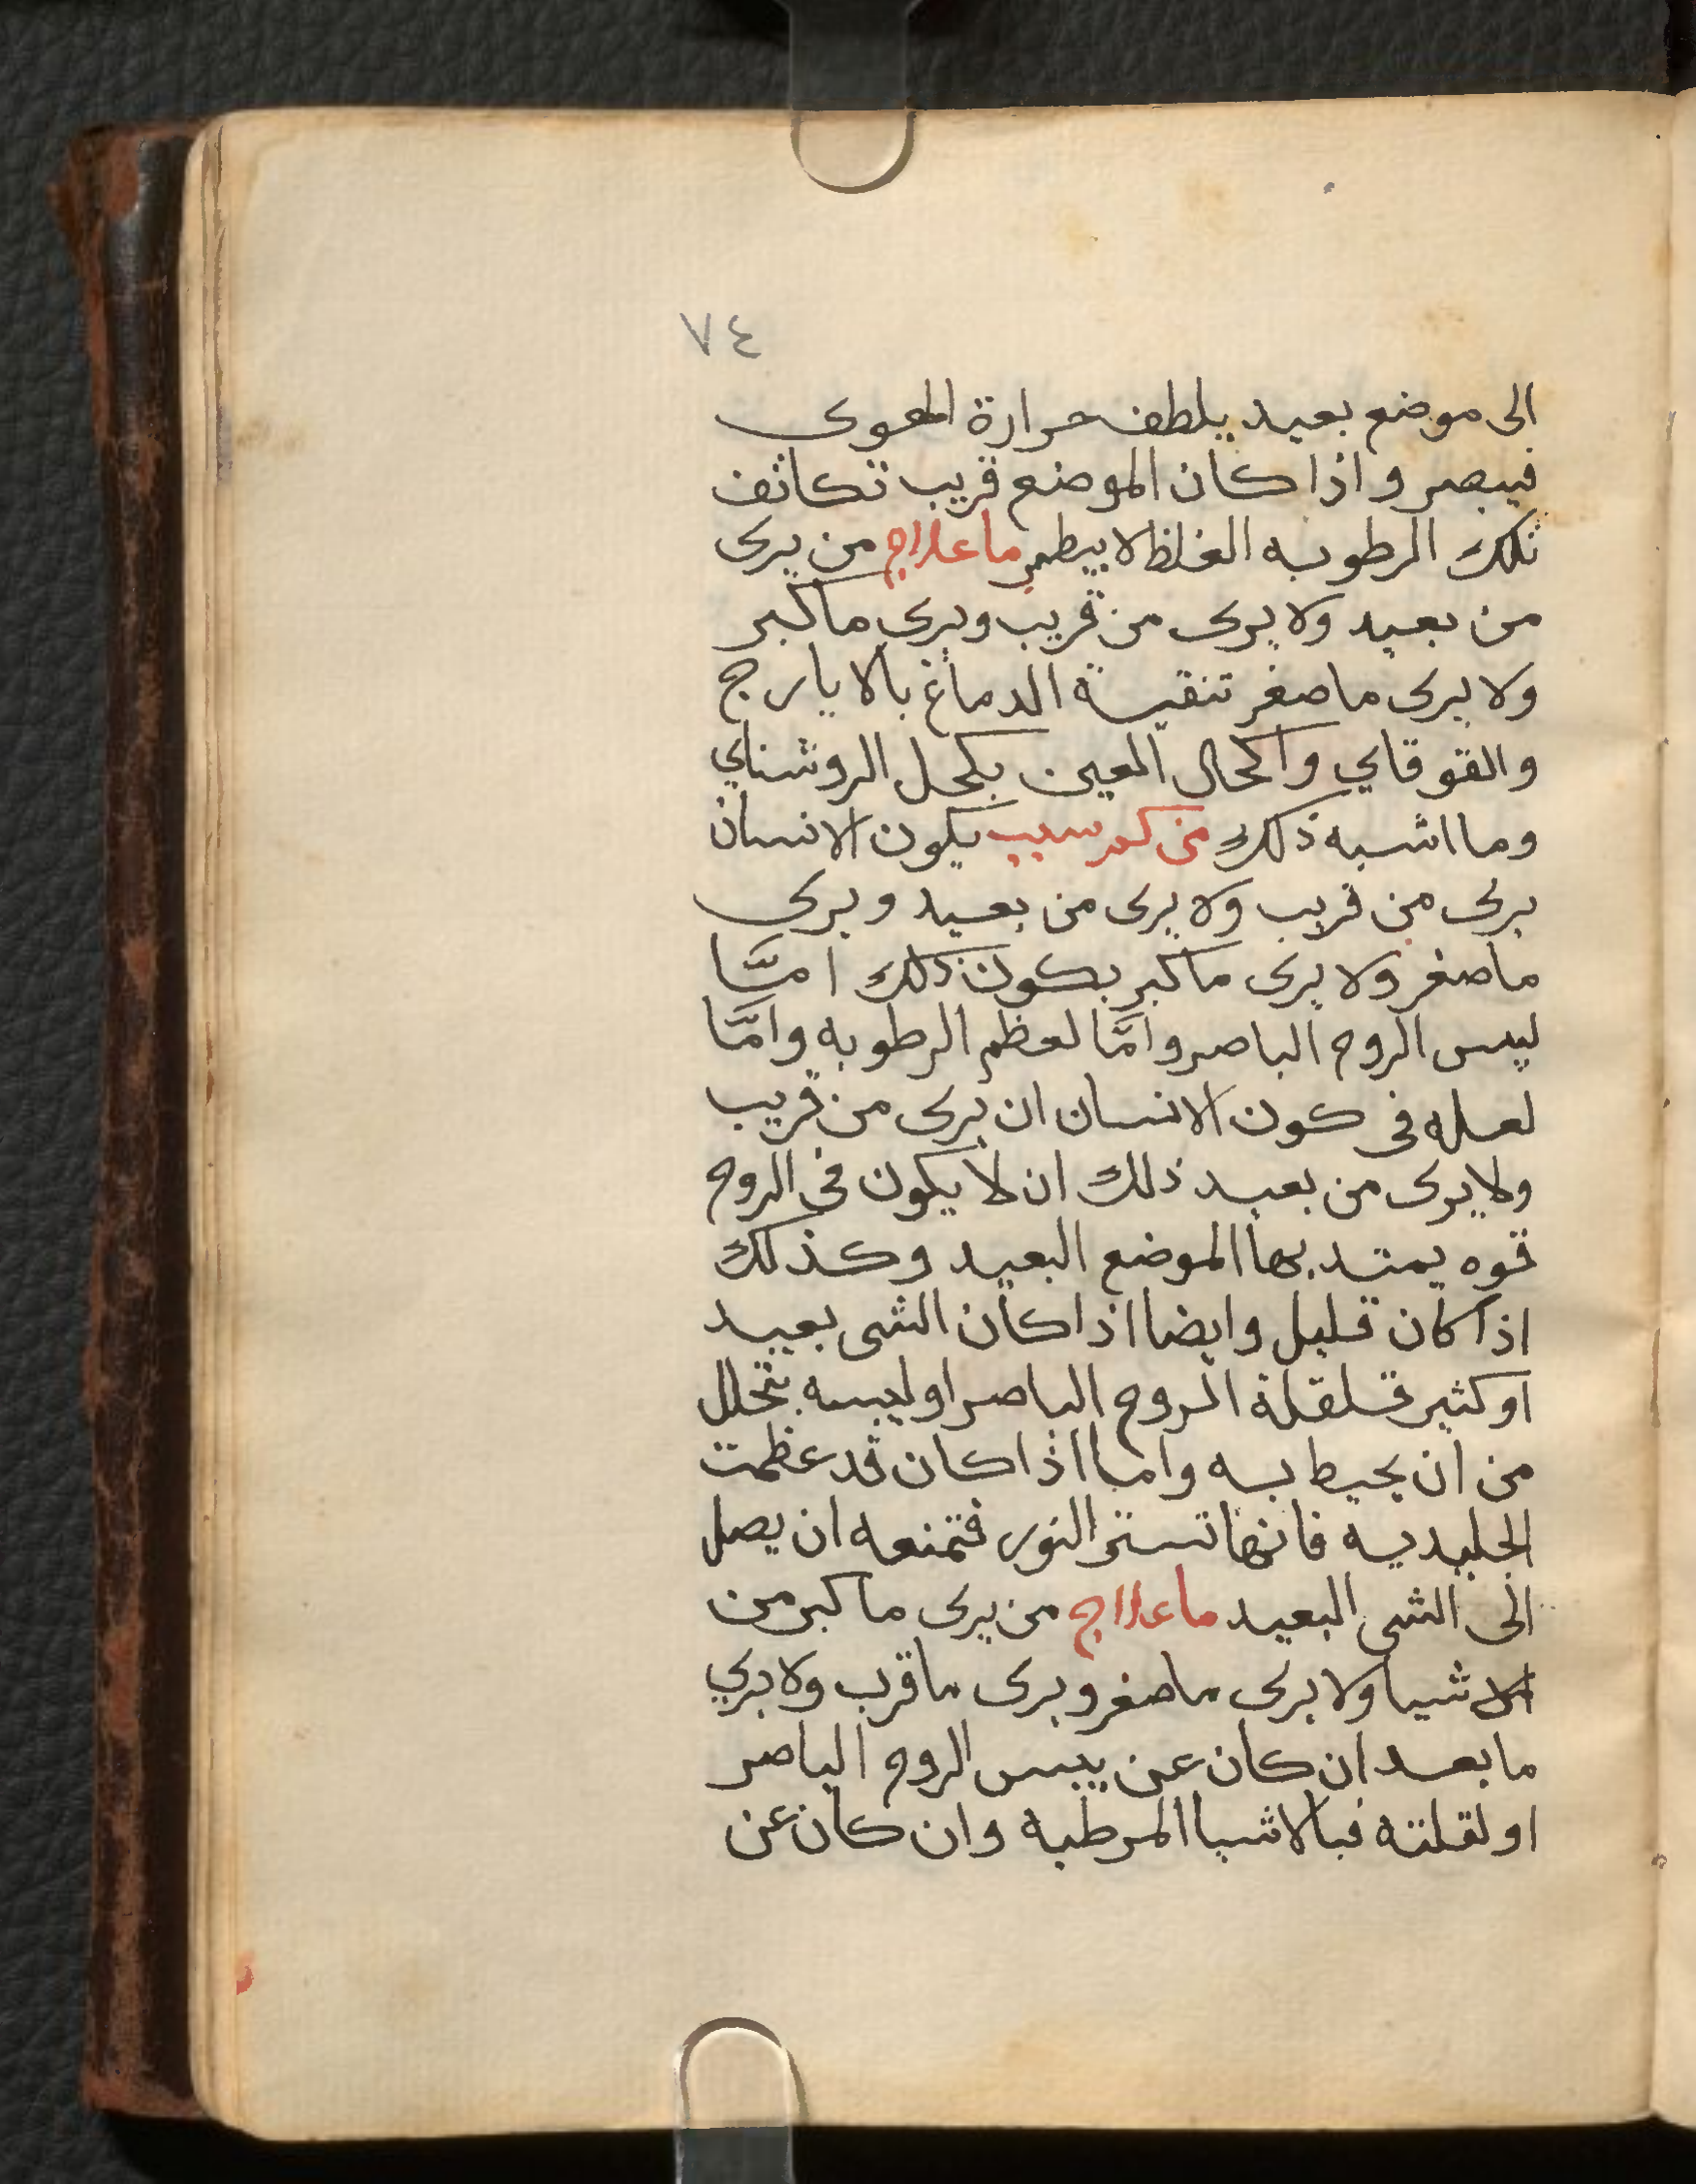 ٧٤
الى موضع بعيد يلطف حرارة الهوى
فيبصر واذا كان الموضع قريب تكاثف
تلك الرطوبه الغلظ لا يبطر ما علاج من يرى
من بعيد ولا يرى من قريب ويرى ما كبر
ولا يرى ما صغر تنقية الدماغ بالايارج
والقوقاي واكحال العين بكحل الروشناي
وما اشبه ذلك من كم سبب يكون الانسان
يرى من قريب ولا يرى من بعيد ويرى
ما صغر ولا يرى ما كبر يكون ذلك امّا
ليبس الروح الباصر وامّا لعظم الرطوبه وامّا
لعله فى كون الانسان ان يرى من قريب
ولا يرى من بعيد ذلك ان لا يكون فى الروح
قوه يمتد بها الموضع البعيد وكذلك
اذا كان قليل وايضا اذا كان الشى بعيد
او كثير فلقلة الروح الباصر او ليبسه يتحلل
من ان يحيط به واما اذا كان قد عظمت
الجليديه فانها تستر النور فتمنعه ان يصل
الى الشى البعيد ما علاج من يرى ما كبر من
الاشيا ولا يرى ما صغر ويرى ما قرب ولا يري
ما بعد ان كان عن يبس الروح الباصر
او لقلته فبالاشيا المرطبه وان كان عن